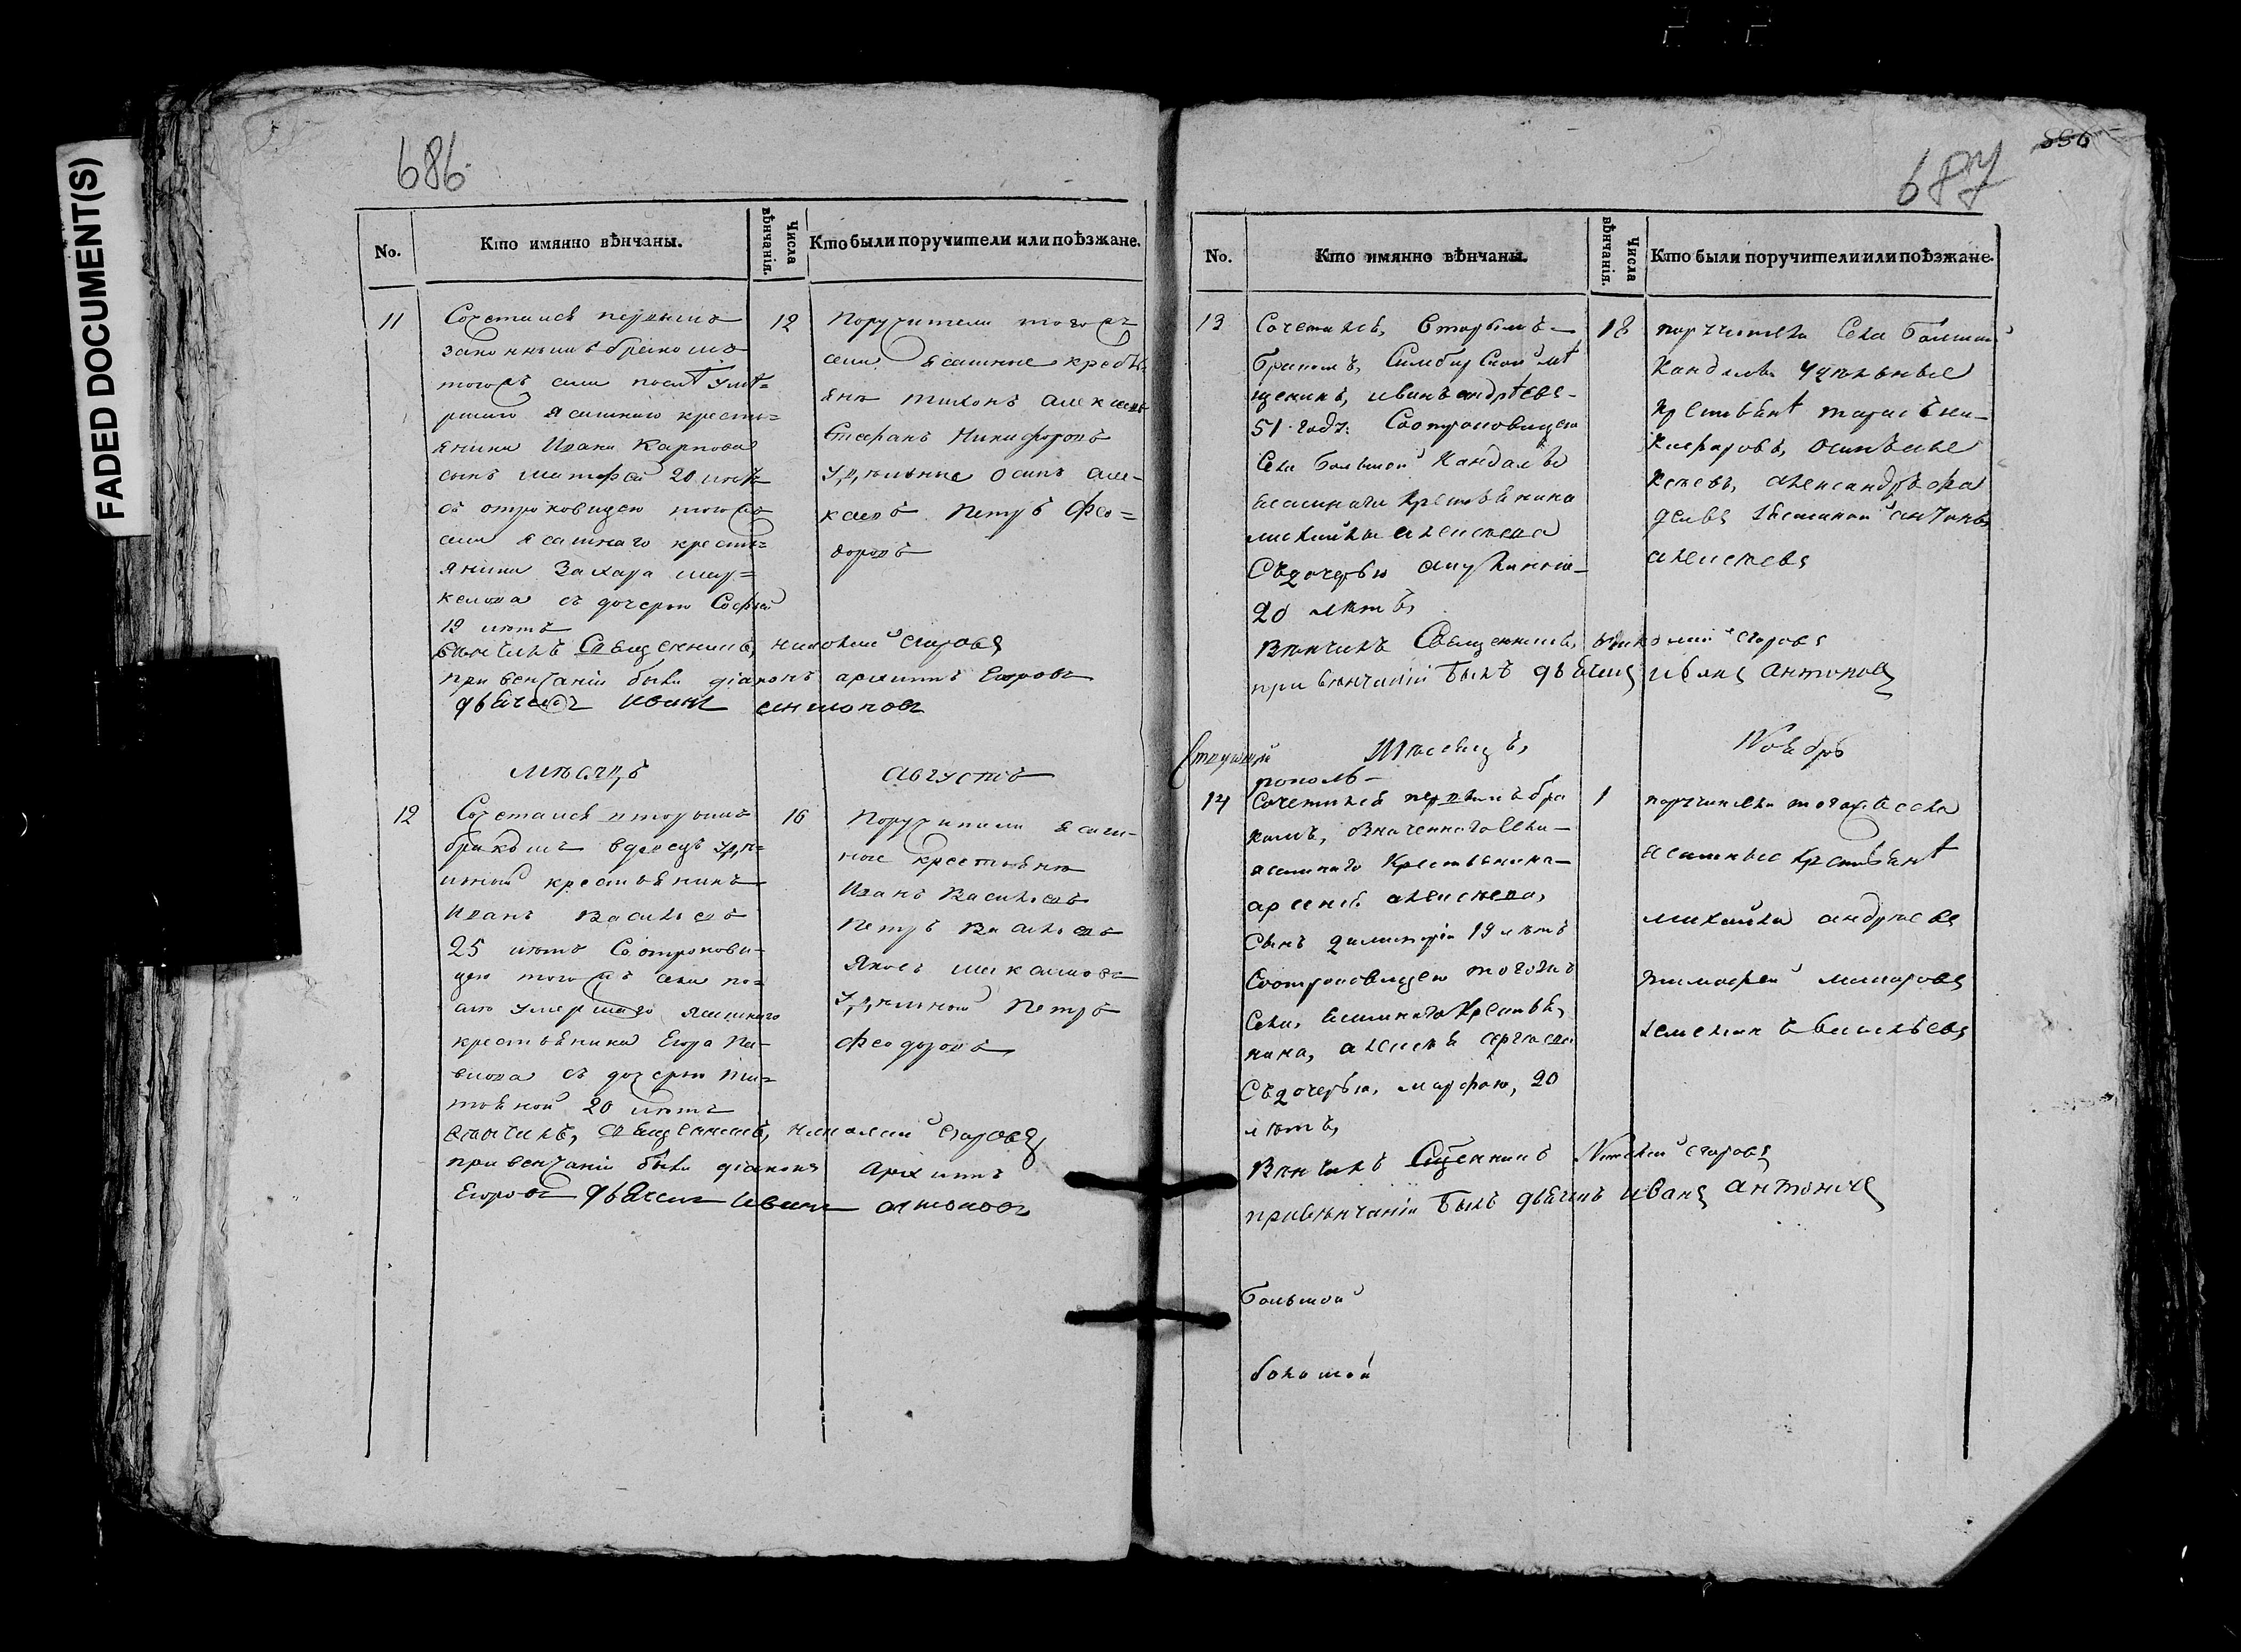 FADED DOCUMENT(S)
686
No.
Кто имянно вѣнчаны.
Числа вѣнчанія.
Кто были поручители или поѣзжане.
11
Сочетался первымъ
законнымъ бракомъ
тогожъ села послѣ умѣ=
ршаго ясашнаго кресть=
янина Ивана Карпова
сынъ 20 лѣтъ
съ отроковицею тогожъ
села ясашнаго кресть=
янина Захара Мар=
келова съ дочерью Софьей
19 лѣтъ
12
Поручители тогожъ
села ясашные кресть=
янѣ Тихонъ Алексѣевъ
Стефанъ Никифоровъ
удѣльные Осипъ Але=
ксѣевъ Петръ Фео=
доровъ
вѣнчилъ Священникъ, николай егоровъ
при венчаніи были діаконъ архипъ Егоровъ
дьячекъ Иванъ антоновъ
мѣсяцъ
августъ
12
Сочетался вторымъ
бракомъ вдовецъ удѣ=
льной крестьянинъ
Иванъ Васильевъ
25 лѣтъ Со отрокови=
цею тогожъ села по=
слѣ умершаго ясашнаго
крестьянина Егора Па=
влова съ дочерью Та=
тьяной 20 лѣтъ
16
Поручители ясаш=
ные крестьянѣ
Иванъ Васильевъ
Петръ Васильевъ
Яковъ
удѣльной Петръ
Феодоровъ
вѣнчилъ, священникъ, николай егоровъ
при венчаніи были діаконъ Архипъ
Егоровъ дьячекъ Иванъ антоновъ
687
No.
Кто имянно вѣнчаны.
Числа вѣнчанія.
Кто были поручители или поѣзжане.
13
Сочетался, Вторымъ
бракомъ, Симбирской мѣ
щенинъ, иванъ андрѣевъ
51 годъ. Соотроковицею
Села большой Кандалы
ясашнаго Крестьянина
михайлы алексѣева
Съдочерью акулиною
20 лѣтъ,
18
поручители Села большой
Кандалы удѣльные
Крестьянѣ тарасъ ни
кифоровъ, осипъ але
ксѣевъ, александръ фа
деевъ ясашной антонъ
алексѣевъ
Вѣнчилъ Священникъ, николай егоровъ
при вѣнчаніи былъ дьячекъ иванъ антоновъ
Мѣсяцъ,
Ноябрь
14
Сочетался первымъ бра
комъ, означеннаго Села
ясашнаго Крестьянина
арсенія алексѣева,
Сынъ димитрій 19 лѣтъ
Соотроковицею тогожъ
Села, ясашнаго Крестья
нина, алексѣя сергѣева
Съдочерью, марфою, 20
лѣтъ,
1
поручители тогожъ села
ясашные Крестьянѣ
михайла андреевъ
тимофей макаровъ
васильевъ
Вѣнчилъ Сщенникъ Николай егоровъ
привѣнчаніи былъ дьячекъ иванъ антоновъ
большой
большой